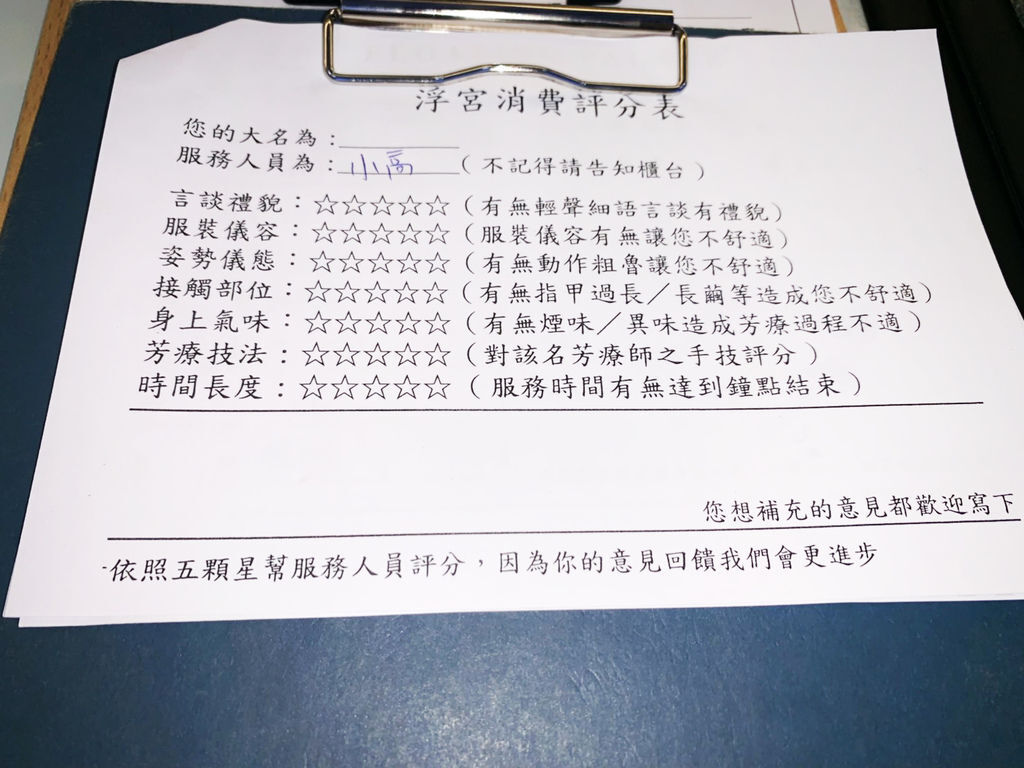 浮宮消費評分表
您的大名為：
服務人員為：小高（不記得請告知櫃台）
言談禮貌：☆☆☆☆☆（有無輕聲細語言談有禮貌）
服裝儀容：☆☆☆☆☆（服裝儀容有無讓您不舒適）
姿勢儀態：☆☆☆☆☆（有無動作粗魯讓您不舒適）
接觸部位：☆☆☆☆☆（有無指甲過長／長繭等造成您不舒適）
身上氣味：☆☆☆☆☆（有無煙味／異味造成芳療過程不適）
芳療技法：☆☆☆☆☆（對該名芳療師之手技評分）
時間長度：☆☆☆☆☆（服務時間有無達到鐘點結束）
您想補充的意見都歡迎寫下
-依照五顆星幫服務人員評分，因為你的意見回饋我們會更進步